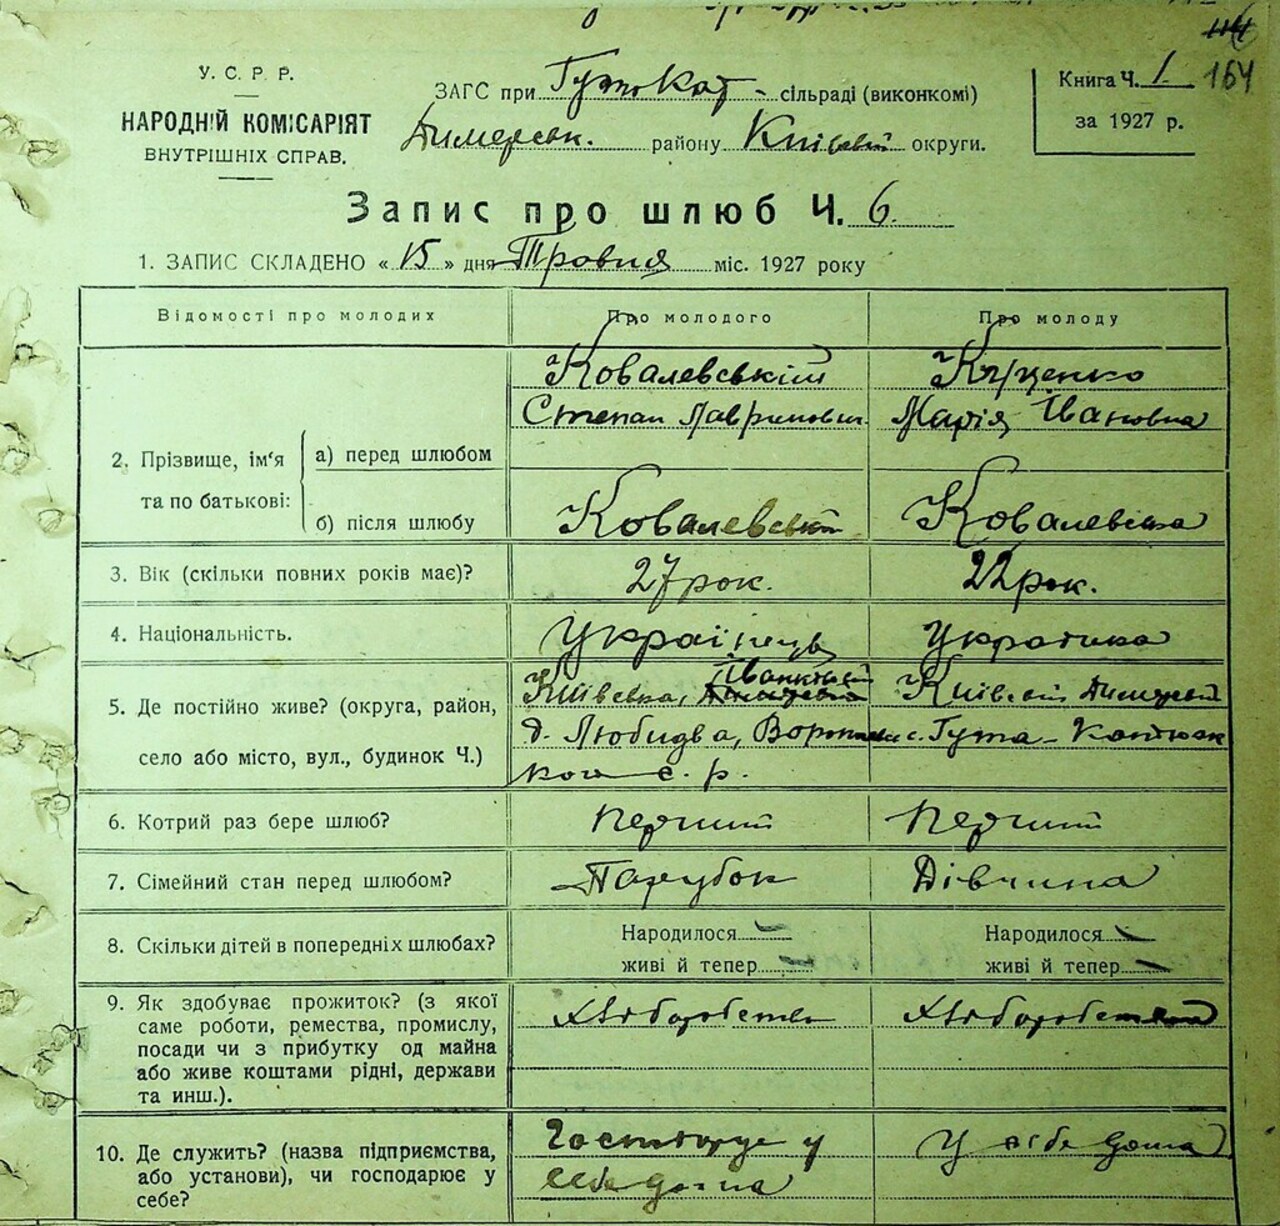 164
У. С. Р. Р.
НАРОДНІЙ КОМІСАРІЯТ
ВНУТРІШНІХ СПРАВ.
ЗАГС при Гутокат- сільраді (виконкомі)
Димерськ. району Київській округи.
Книга Ч. 1
за 1927 р.
Запис про шлюб Ч. 6
1. ЗАПИС СКЛАДЕНО « 15 » дня Травня міс. 1927 року
Відомості про молодих Про молодого Про молоду
Ковалевський Куценко
Степан Лавринович Марія Івановна
2. Прізвище, ім'я та по батькові:
а) перед шлюбом
б) після шлюбу Ковалевський Ковалевська
3. Вік (скільки повних років має)? 27 рок. 22 рок.
4. Національність. Українець Українка
5. Де постійно живе? (округа, район,
село або місто, вул., будинок Ч.)
Київська, Іванківськ
д. Любидва,
с. р.
Київській Димерській
с. Гута-
6. Котрий раз бере шлюб? Перший Перший
7. Сімейний стан перед шлюбом? Парубок Дівчина
8. Скільки дітей в попередніх шлюбах? Народилося - Народилося -
живі й тепер - живі й тепер -
9. Як здобуває прожиток? (з якої
саме роботи, ремества, промислу,
посади чи з прибутку од майна
або живе коштами рідні, держави
та инш.).
Хліборобство Хліборобством
10. Де служить? (назва підприємства,
або установи), чи господарює у
себе?
Господорує у
себе дома
У себе дома